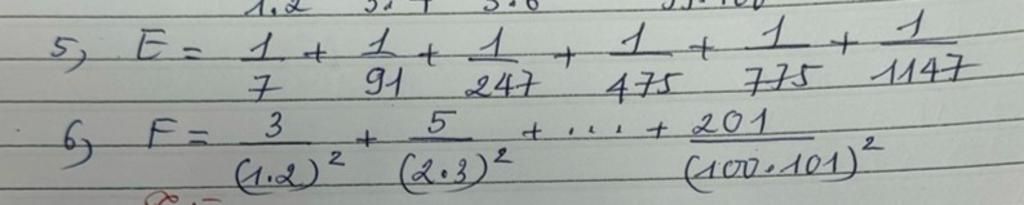 5, E = 1/7 + 1/91 + 1/247 + 1/475 + 1/775 + 1/1147
6, F = 3/(1.2)² + 5/(2.3)² + .... + 201/(100.101)²